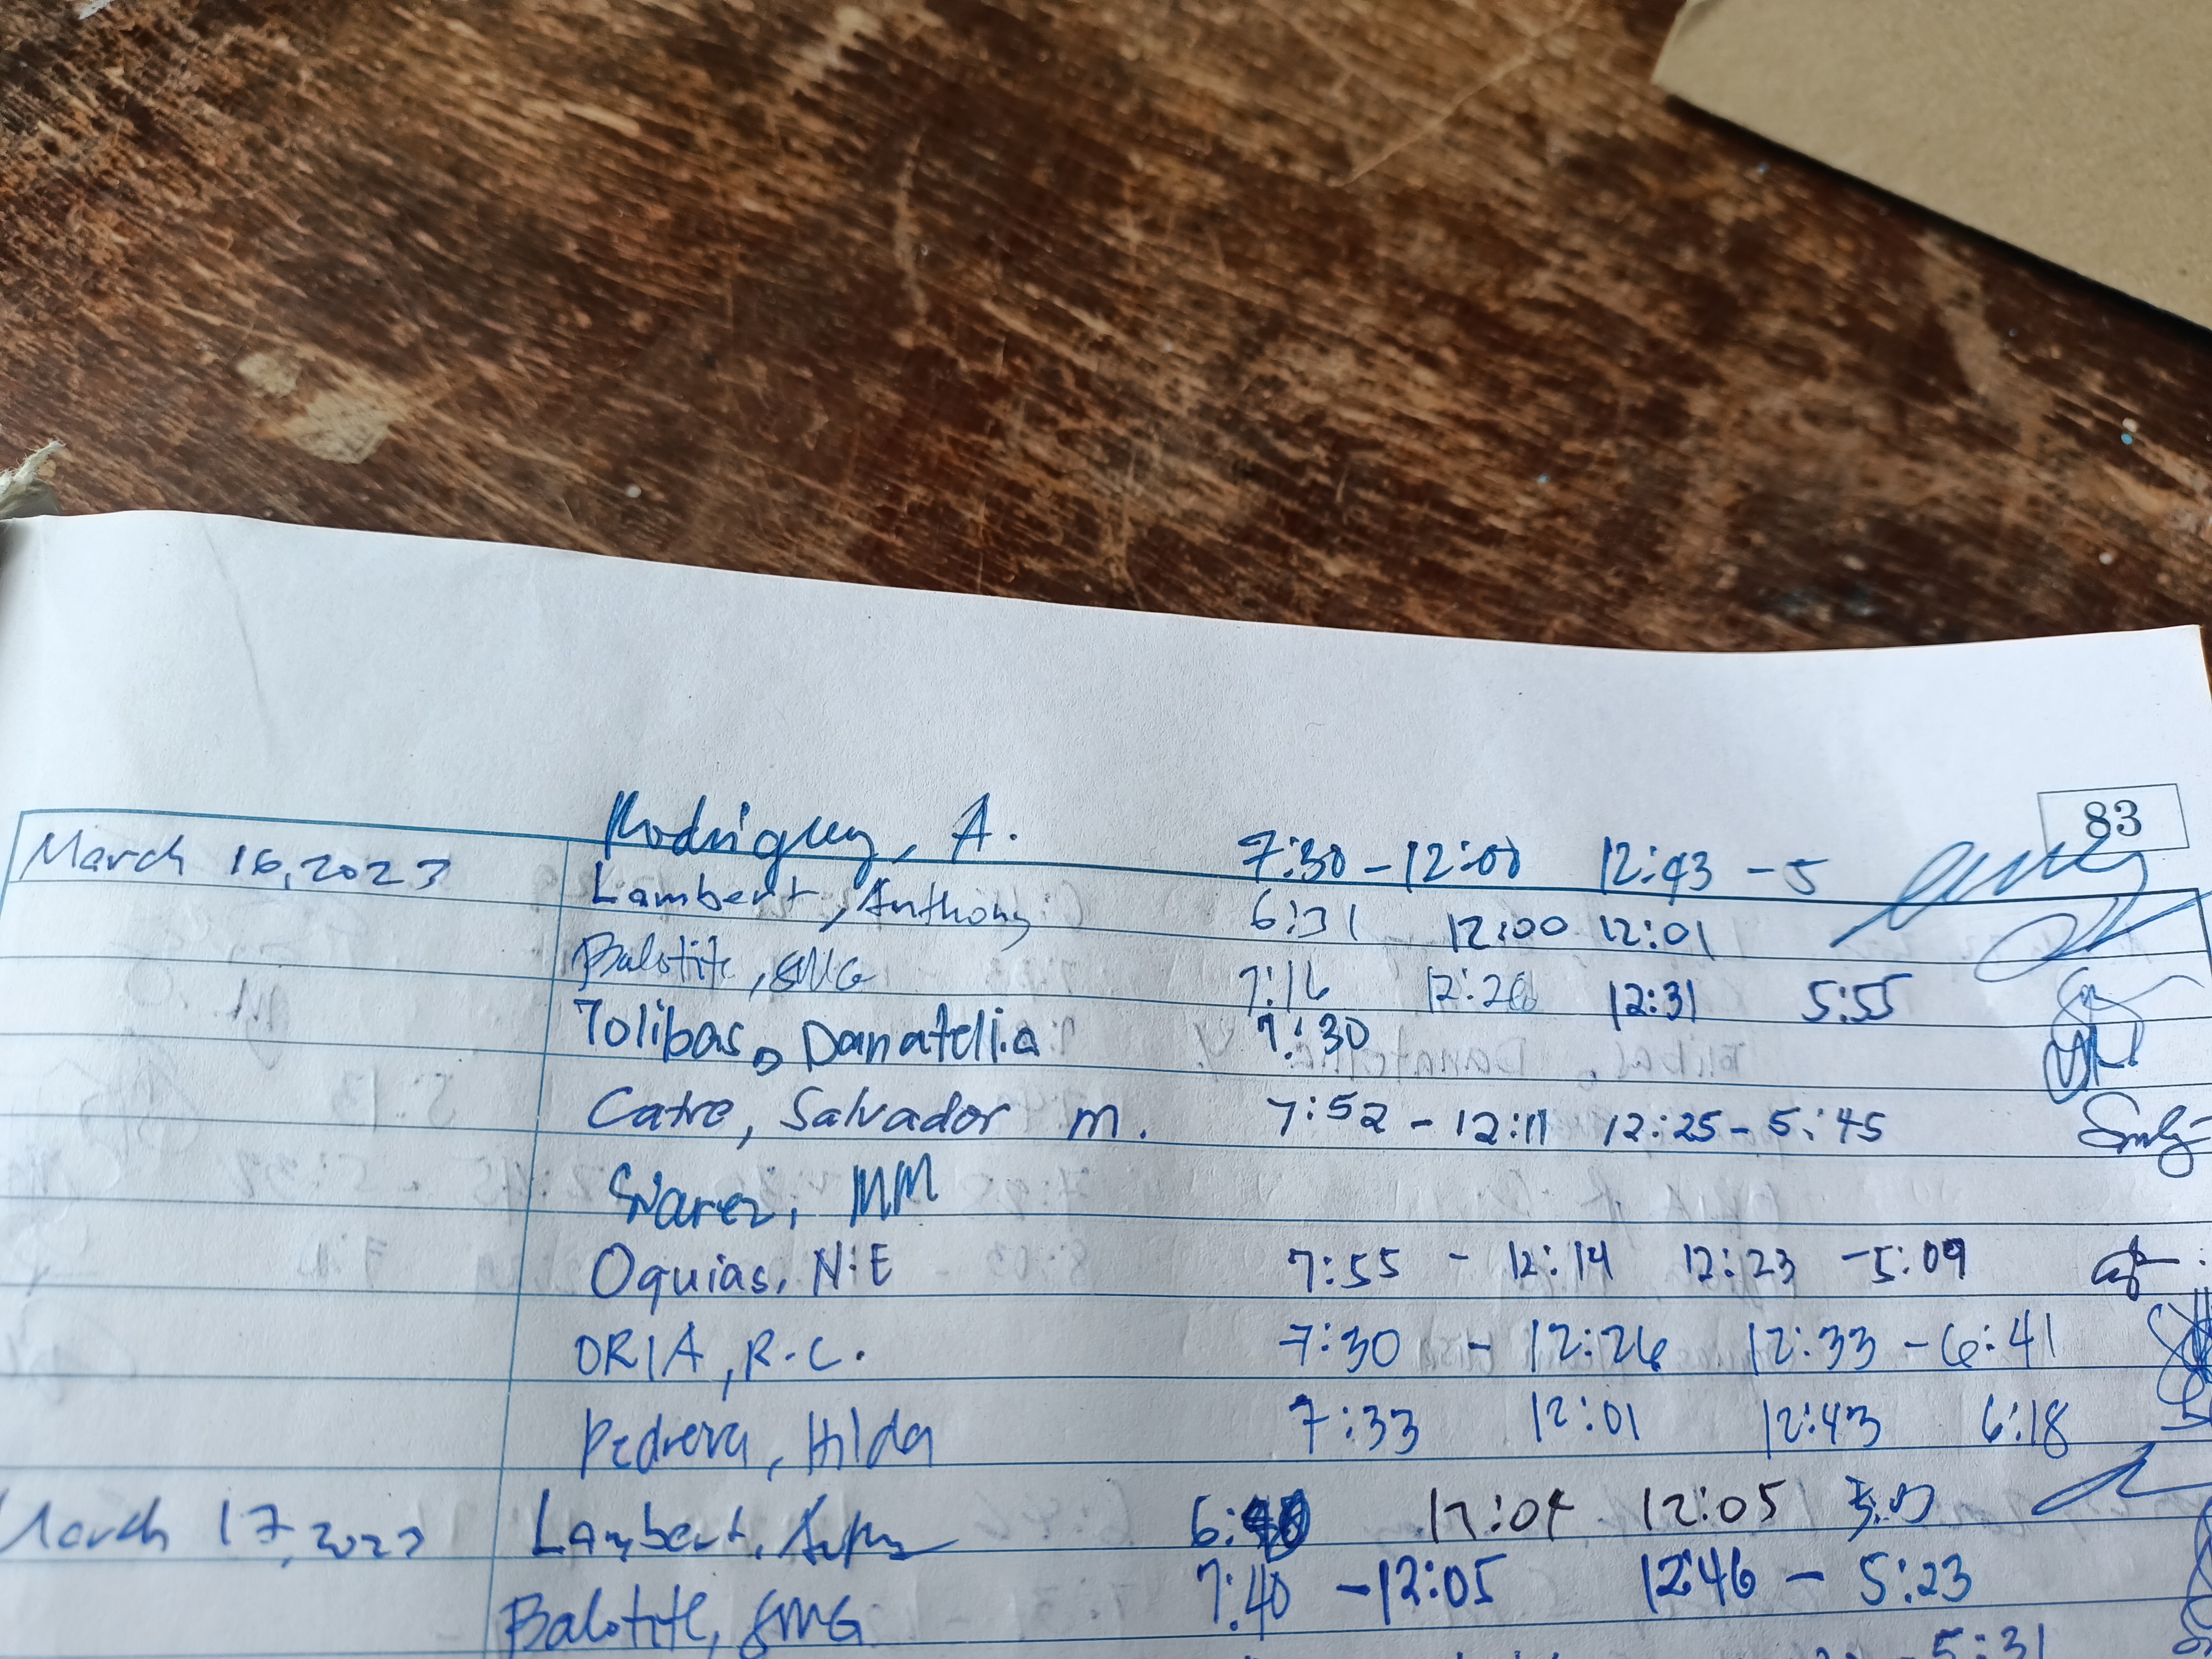 83
Rodriguez, A. 7:30 - 12:00 12:43 - 5
March 16, 2023
Lambert, Anthony 6:31 12:00 12:01
Balotite, SMG 7:16 12:26 12:31 5:55
Tolibas, Danatelia 7:30
Catre, Salvador M. 7:52 - 12:11 12:25 - 5:45
Suarez, MM
Oquias, N.E 7:55 - 12:14 12:23 - 5:09
ORIA, R.C. 7:30 - 12:26 12:33 - 6:41
Pedrera, Hilda 7:33 12:01 12:43 6:18
March 17, 2023 Lambert, 12:04 12:05
Balotite, SMG 7:40 - 12:05 12:46 - 5:23
- 5:31